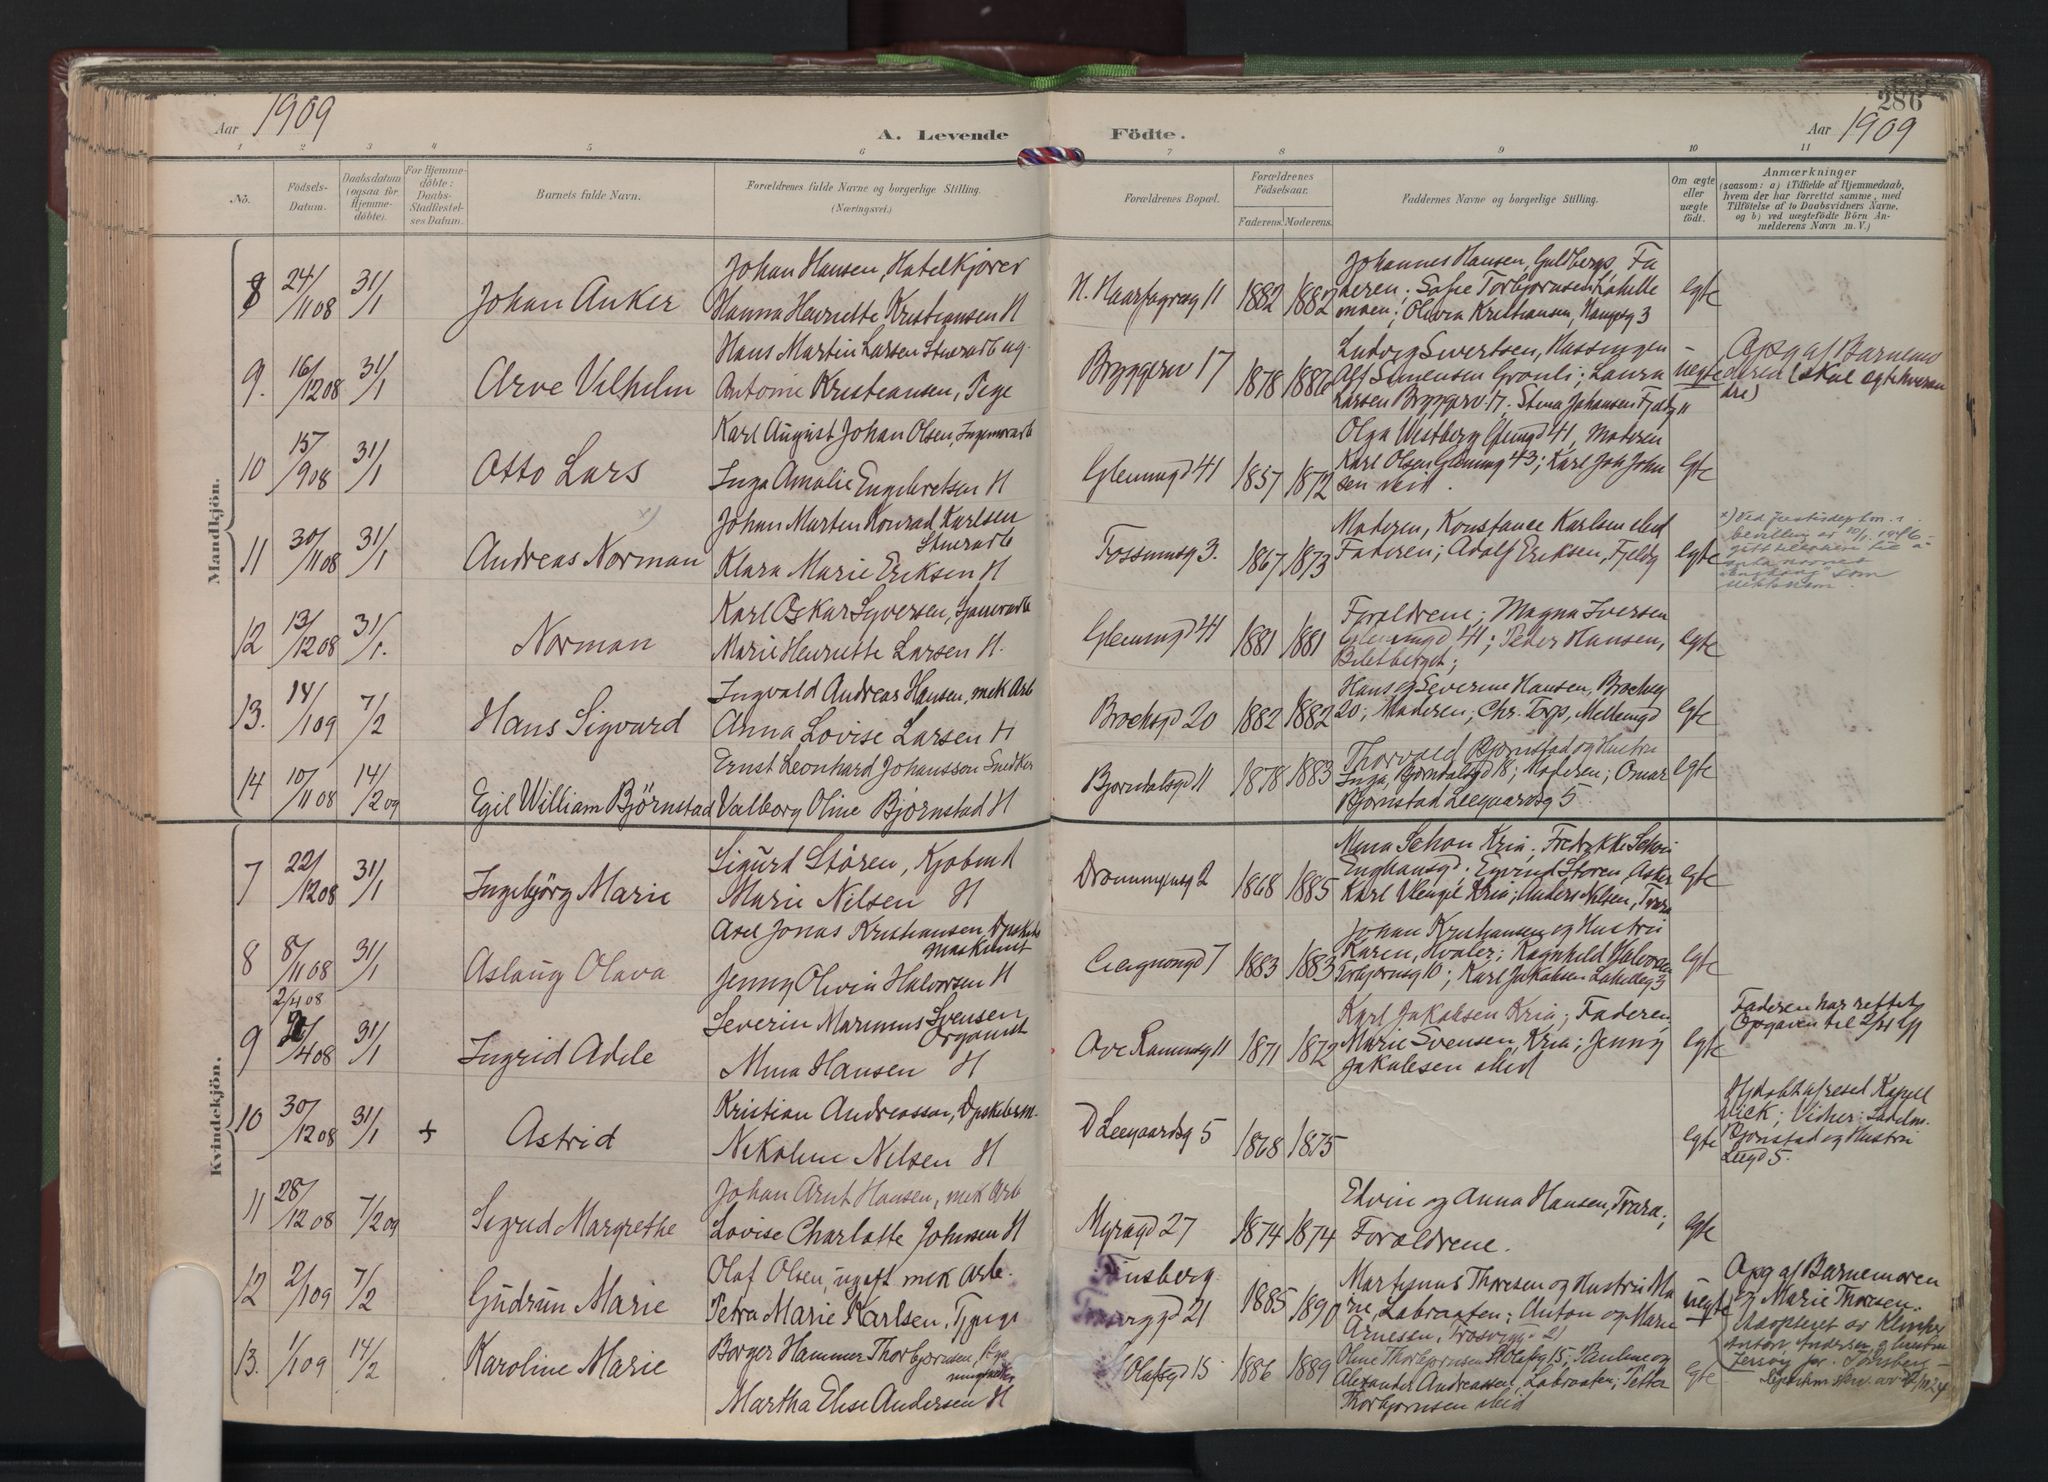 286
Aar 1909
A. Levende Födte.
Aar 1909
1 2 3 4 5 6 7 8 9 10 11
No.
Födsels-
Datum.
Daabsdatum
(ogsaa for
Hjemme-
döbte).
For Hjemme-
döbte:
Daabs-
Stadfæstel-
ses Datum.
Barnets fulde Navn.
Forældrenes fulde Navne og borgerlige Stilling.
(Næringsvei.)
Forældrenes Bopæl.
Forældrenes
Födselsaar.
Faderens. Moderens.
Faddernes Navne og borgerlige Stilling.
Om ægte
eller
uægte
födt.
Anmærkninger
(saasom: a) i Tilfælde af Hjemmedaab,
hvem der har forrettet samme, med
Tilföielse af to Daabsvidners Navne,
og b) ved uægtefödte Börn An-
melderens Navn m. V.)
Mandkjön.
8 24/11 08 31/1 Johan Anker
Johan Hansen, Hotelkjører
Hanna Henriette Kristiansen H
H. Haarfagresg 11 1882 1882
Johannes Hansen, Guldbergs, Fa
deren; Sofie Torbjørnsen
Olivia Kristiansen, Haugesg 3
egte
9. 16/12 08 31/1 Arve Vilhelm
Hans Martin Larsen Stenarb ug.
Antonie Kristiansen, Pige
Bryggeriv 17 1878 1886
Ludvig Sivertsen, Hassingen
Alf Simensen Grønli; Laura
Larsen Bryggerv 17. Stina Johansen Fjeldg 11
uegte
Opg af Barnemo
deren (skal egte hveran
dre)
10 15/9 08 31/1 Otto Lars
Karl August Johan Olsen,
Inga Amalie Engebretsen H
Glemmgd 41 1857 1872
Olga Westberg Glemgd 41, Moderen
Karl Olsen Glemmg 43; Karl Joh Johan
sen ibid.
egte
11 30/11 08 31/1 Andreas Norman x)
Johan Martin Konrad Karlsen
Stenarb
Klara Marie Eriksen H
Fossumsg 3. 1867 1873
Moderen, Konstance Karlsen ibid
Faderen; Adolf Eriksen, Fjeldg
egte
x) Ved justisdeptm.s
bevilling av 10/1 1946
gitt tillatelse til å
anta navnet
som
slektsnavn.
12 13/12 08 31/1. Norman
Karl Oskar Syversen,
Marie Henriette Larsen H.
Glemmgd 41 1881 1881
Forældrene; Magna Iversen
Glemmgd 41; Peder Hansen,
Biletberget;
egte
13. 14/1 09 7/2 Hans Sigvard
Ingvald Andreas Hansen, mek Arb
Anna Lovise Larsen H
Brochsgd 20 1882 1882
Hans og Severine Hansen, Brochsg
20; Moderen; Chr. Torp, Mellemgd
egte
14 10/11 08 14/2 09 Egil William Björnstad
Ernst Leonhard Johansson Snedker
Valborg Oline Bjørnstad H
Bjørndalsgd 11 1878 1883
Thorvald Bjørnstad og Hustru
Inga, Bjørndalsgd 18; Moderen; Omar
Bjørnstad Leegaardsg 5.
egte
Kvindekjön.
7 22/12 08 31/1 Ingebjörg Marie
Sigurd Støren, Kjøbmd
Marie Nilsen H
Dronningensg 2 1868 1885
Mina Schou Kria; Fredrikke Schou
Enghaugd. Eyvind Støren, Asker
Karl Wengel Kria; Anders Nilsen, Trara
egte
8 8/11 08 31/1 Aslaug Olava
Axel Jonas Kristiansen Dpskibs
maskinist
Jenny Olivia Halvorsen H
7 1883 1883
Johan Kristiansen og Hustru
Karen, Hvaler; Ragnhild Halvorsen
Torbjørnsg 10; Karl Jakobsen 3
egte
2/4 08
9 2/4 08 31/1 Ingrid Adele
Severin Marinius Svensen
Organist
Mina Hansen H
Ove Ramsg 11 1871 1872
Karl Jakobsen Kria; Faderen,
Marie Svensen, Kria; Jenny
Jakobsen ibid
egte
Faderen har rettet
Opgaven til
10 30/12 08 31/1 + Astrid
Kristian Andreassen, Dpskibsm.
Nikoline Nilsen H
D Leegaardsg 5 1868 1875
egte
Hjdøbt af resd Kapell
Vick; Vidner:
Bjørnstad og Hustru
Leegd 5.
11 28/12 08 7/2 09 Sigrid Margrethe
Johan Arnt Hansen, mek Arb
Lovise Charlotte Johnsen H
Myragd 27 1874 1874
Edvin og Anna Hansen, Trara;
Forældrene.
egte
12 2/1 09 7/2 Gudrun Marie
Olaf Olsen, ugift mek Arb.
Petra Marie Karlsen, Tjpige
Tunsberg
21 1885 1890
Martinius Thoresen og Hustru Ma
rie, Labraaten; Anton og Marie
Arnesen, Trosvigg 21
uegte
Opg af Barnemoren
og Marie Thoresen.
Adopteret av
Anton Andersen og hustru
13. 1/1 09 14/2 Karoline Marie
Borger Hammer Thorbjørnsen,
Martha Elise Andersen H
St Olafsgd 15 1886 1889
Oline Thorbjørnsen St Olafsg 15; Pauline og
Alexander Andreassen, Labraaten; Petter
Thorbjørnsen ibid
egte